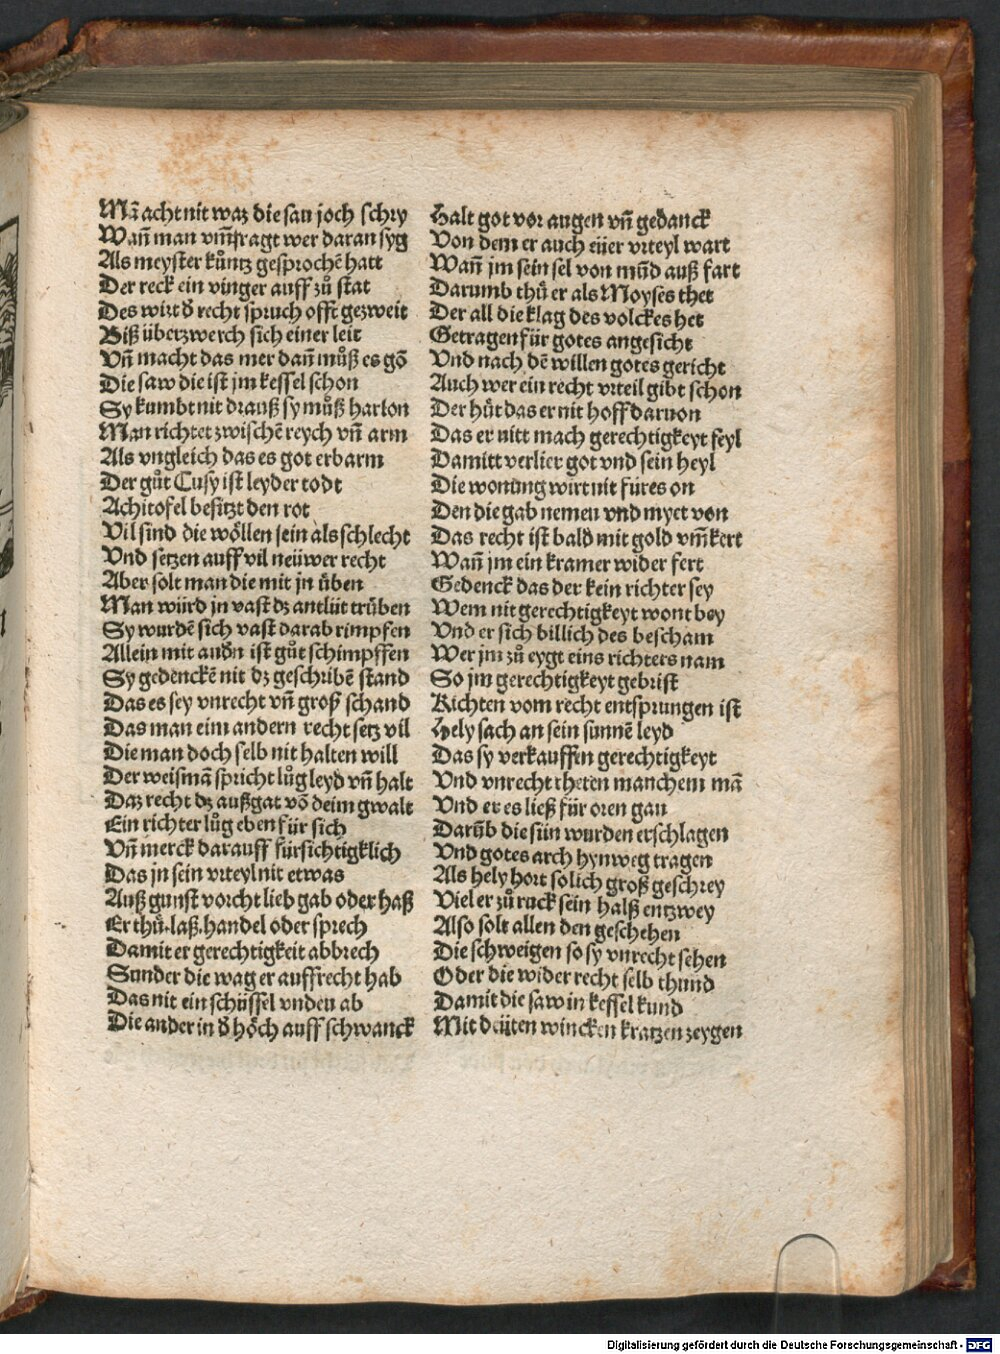 Mā acht nit waz die sau joch schry
Wañ man vm̃fragt wer daran syg
Als meyster kůntz gesprochē hatt
Der reck ein vinger auff zů stat
Des wirt d̕ recht spruch offt gezweit
Biß überzwerch sich einer leit
Vñ macht das mer dañ můß es gō
Die saw die ist jm kessel schon
Sy kumbt nit drauß sy můß har lon
Man richtet zwischē reych vñ arm
Als vngleich das es got erbarm
Der gůt Cusy ist leyder todt
Achitofel besitzt den rot
Vil sind die wöllen sein als schlecht
Vnd setzen auff vil neüwer recht
Aber solt man die mit jn üben
Man würd jn vast dz antlüt trüben
Sy wurdē sich vast darab rimpfen
Allein mit andn ist gůt schimpffen
Sy gedenckē nit dz geschribē stand
Das es sey vnrecht vñ groß schand
Das man eim andern recht setz vil
Die man doch selb nit halten will
Der weismā spricht lůg leyd vñ halt
Daz recht dz außgat vō deim gwalt
Ein richter lůg eben für sich
Vñ merck darauff fürsichtigklich
Das jn sein vrteyl nit etwas
Auß gunst vorcht lieb gab oder haß
Er thů. laß. handel oder sprech
Damit er gerechtigkeit abbrech
Sunder die wag er auffrecht hab
Das nit ein schüssel vnden ab
Die ander in d̕ höch auff schwanck
Halt got vor augen vñ gedanck
Von dem er auch eüer vrteyl wart
Wañ jm sein sel von mūd auß fart
Darumb thů er als Moyses thet
Der all die klag des volckes het
Getragen für gotes angesicht
Vnd nach dē willen gotes gericht
Auch wer ein recht vrteil gibt schon
Der hůt das er nit hoff daruon
Das er nitt mach gerechtigkeyt feyl
Damitt verlier got vnd sein heyl
Die wonung wirt nit füres on
Den die gab nemen vnd myet von
Das recht ist bald mit gold vm̃kert
Wañ jm ein kramer wider fert
Gedenck das der kein richter sey
Wem nit gerechtigkeyt wont bey
Vnd er sich billich des bescham
Wer jm zů eygt eins richters nam
So jm gerechtigkeyt gebrist
Richten vom recht entsprungen ist
Hely sach an sein sunnē leyd
Das sy verkaufften gerechtigkeyt
Vnd vnrecht theten manchem mā
Vnd er es ließ für oren gan
Darūb die sün wurden erschlagen
Vnd gotes arch hynweg tragen
Als hely hort solich groß geschrey
Viel er zů ruck sein halß entzwey
Also solt allen den geschehen
Die schweigen so sy vnrecht sehen
Oder die wider recht selb thund
Damit die saw in kessel kund
Mit deüten wincken kratzen zeygen
Digitalisierung gefördert durch die Deutsche Forschungsgemeinschaft - DFG